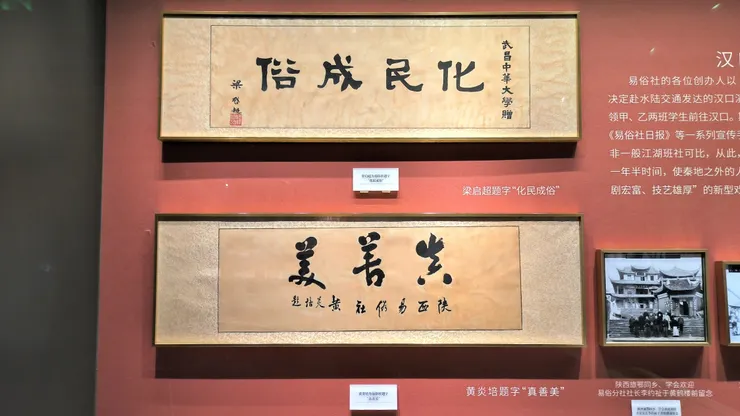 武昌中華大學贈
化民成俗
梁啟超
梁启超题字“化民成俗”
真善美
陝西易俗社 黃炎培題
黄炎培题字“真善美”
汉口
易俗社的各位创办人以
决定赴水陆交通发达的汉口演
领甲、乙两班学生前往汉口。
《易俗社日报》等一系列宣传手
非一般江湖班社可比，从此，
一年半时间，使秦地之外的人
剧宏富、技艺雄厚”的新型戏
陕西旅鄂同乡、学会欢迎
易俗分社社长李约祉于黄鹤楼前留念